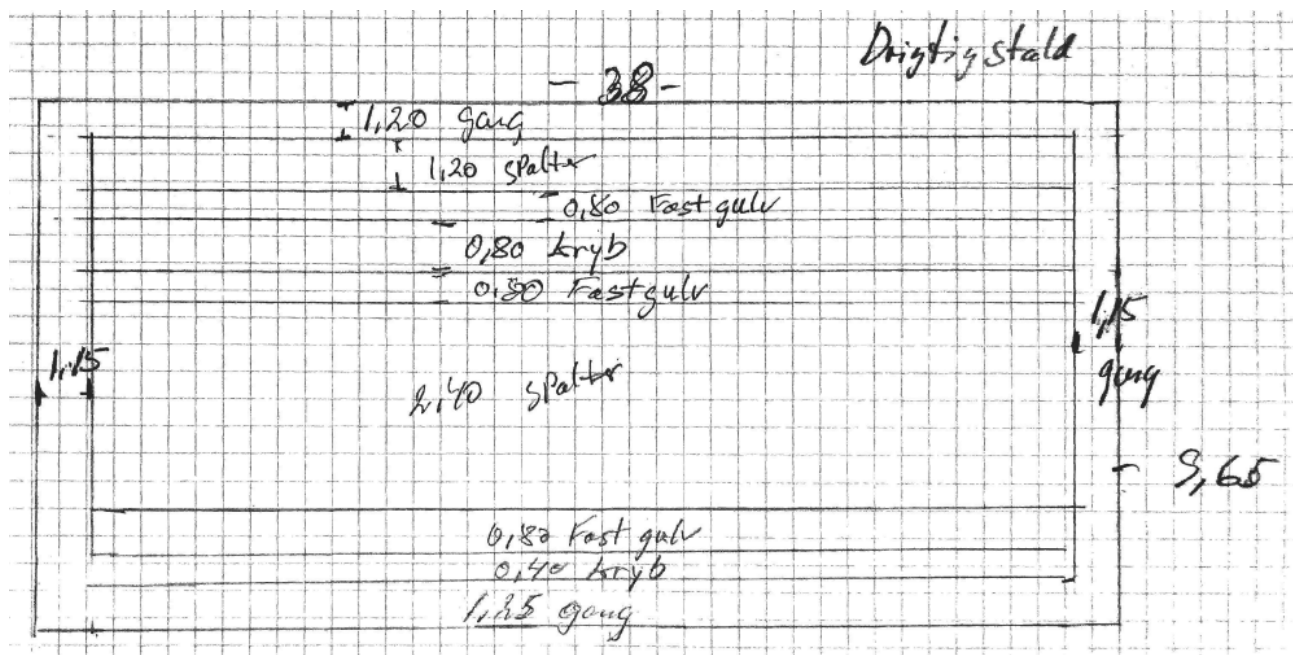 Drigtig stald
- 38 -
1,20 gang
1,20 spalter
0,80 Fast gulv
0,80 kryb
0,80 Fast gulv
1,15
gang
1,15
2,40 spalter
9,65
0,80 Fast gulv
0,40 kryb
1,25 gang